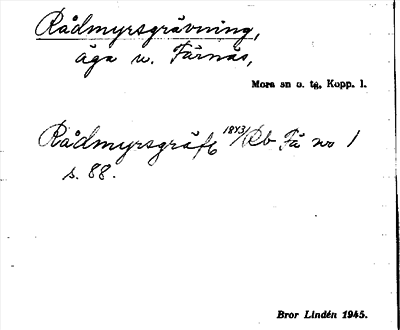 Rådmyrsgrävning,
äga u. Färnäs,
Mora sn o. tg. Kopp. l.
Rådmyrsgräfg 1843/Rb Fä no 1
s. 88.
Bror Lindén 1945.